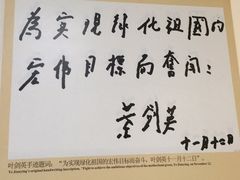 為实現绿化祖國的
宏伟目標而奮闘！
葉剑英
十一月十二日
叶剑英手迹题词：“为实现绿化祖国的宏伟目标而奋斗，叶剑英十一月十二日”。
Ye Jianying's original handwritten inscription, "Fight to achieve the ambitious objectives of the motherland green, Ye Jianying on November 12.